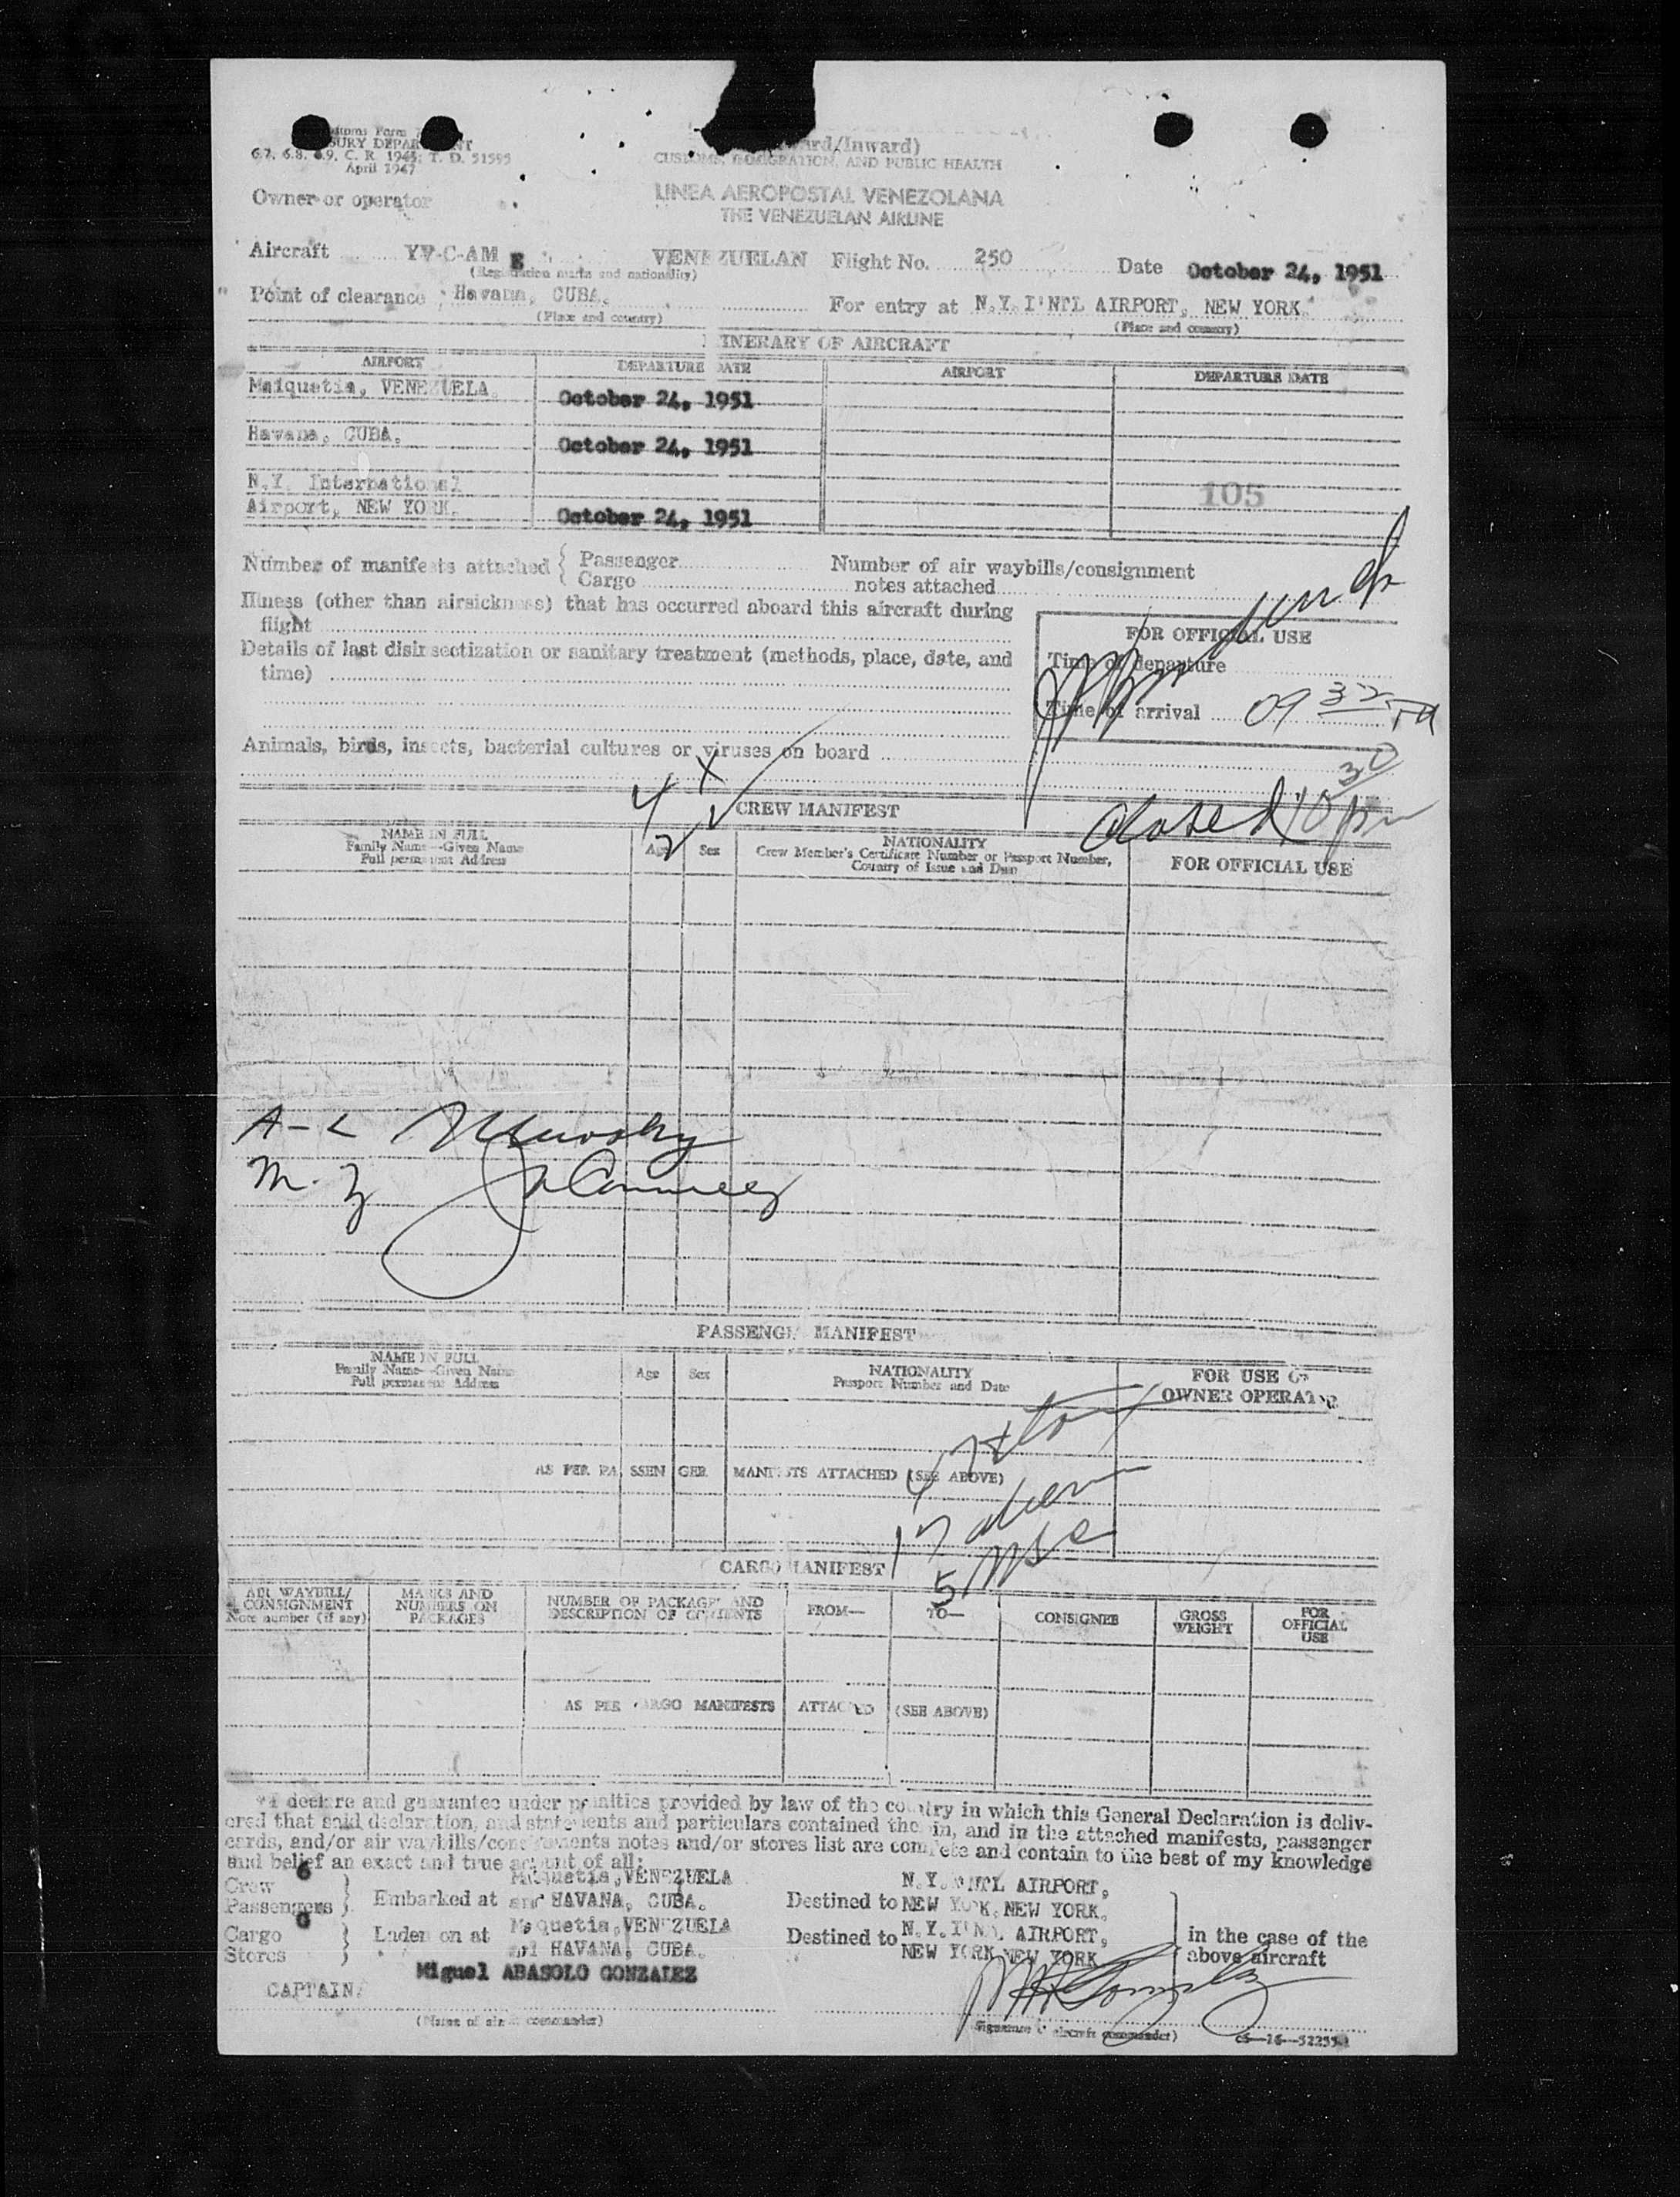 April 1947
CUSTOMS, IMMIGRATION, AND PUBLIC HEALTH
Owner or operator
LINEA AEROPOSTAL VENEZOLANA
THE VENEZUELAN AIRLINE
Aircraft YV-C-AM E VENEZUELAN Flight No. 250 Date October 24, 1951
(Registration marks and nationality)
Point of clearance Havana, CUBA. For entry at N.Y. I'NTL AIRPORT, NEW YORK.
(Place and country) (Place and country)
ITINERARY OF AIRCRAFT
AIRPORT DEPARTURE DATE AIRPORT DEPARTURE DATE
Maiquetia, VENEZUELA. October 24, 1951
Havana, CUBA. October 24, 1951
N.Y. International
105
Airport, NEW YORK. October 24, 1951
Number of manifests attached { Passenger Number of air waybills/consignment
Cargo notes attached
Illness (other than airsickness) that has occurred aboard this aircraft during
flight
FOR OFFICIAL USE
Details of last disinsectization or sanitary treatment (methods, place, date, and
time)
Time of departure
Time of arrival 09 32
Animals, birds, insects, bacterial cultures or viruses on board
4 x
closed 10 30 pm
CREW MANIFEST
2 ✓
NAME IN FULL
Family Name--Given Name
Full permanent Address
Age Sex
NATIONALITY
Crew Member's Certificate Number or Passport Number,
Country of Issue and Date
FOR OFFICIAL USE
A-L
M. Z
PASSENGER MANIFEST
NAME IN FULL
Family Name--Given Name
Full permanent Address
Age Sex
NATIONALITY
Passport Number and Date
FOR USE OF
OWNER OPERATOR
AS PER PASSENGER MANIFESTS ATTACHED (SEE ABOVE)
4
17 alien
5 USC
CARGO MANIFEST
AIR WAYBILL/
CONSIGNMENT
Note number (if any)
MARKS AND
NUMBERS ON
PACKAGES
NUMBER OF PACKAGES AND
DESCRIPTION OF CONTENTS
FROM— TO— CONSIGNEE
GROSS
WEIGHT
FOR
OFFICIAL
USE
AS PER CARGO MANIFESTS ATTACHED (SEE ABOVE)
I declare and guarantee under penalties provided by law of the country in which this General Declaration is deliv-
ered that said declaration, and statements and particulars contained therein, and in the attached manifests, passenger
cards, and/or air waybills/consignments notes and/or stores list are complete and contain to the best of my knowledge
and belief an exact and true account of all:
Crew 6
Passengers } Embarked at Maiquetia, VENEZUELA
and HAVANA, CUBA. Destined to N.Y. INTL AIRPORT,
NEW YORK, NEW YORK.
Cargo
Stores } Laden on at Maiquetia, VENEZUELA
and HAVANA, CUBA. Destined to N.Y. I'NTL AIRPORT,
NEW YORK NEW YORK
in the case of the
above aircraft
CAPTAIN Miguel ABASOLO GONZALEZ
(Name of aircraft commander) (Signature of aircraft commander)